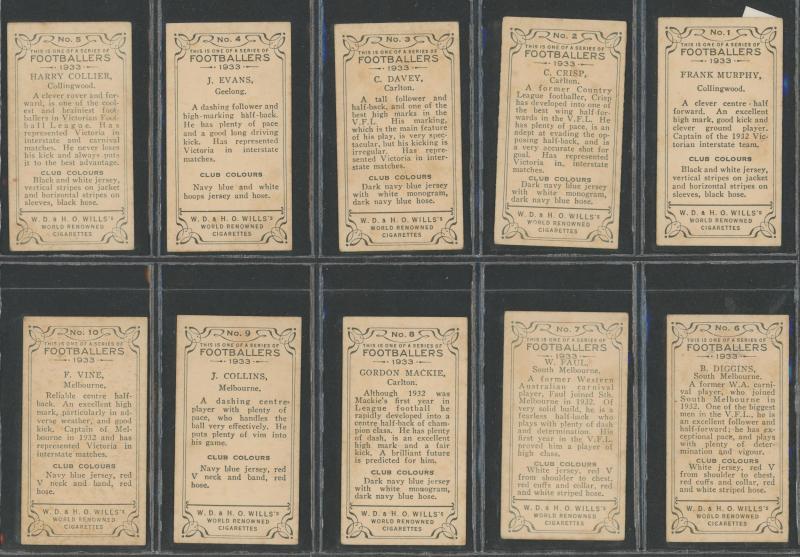 No. 5
THIS IS ONE OF A SERIES OF
FOOTBALLERS
1933
HARRY COLLIER,
Collingwood.
A clever rover and for-
ward, is one of the cool-
est and brainiest foot-
ballers in Victorian Foot-
ball League. Has
represented Victoria in
interstate and carnival
matches. He never loses
his kick and always puts
it to the best advantage.
CLUB COLOURS
Black and white jersey,
vertical stripes on jacket
and horizontal stripes on
sleeves, black hose.
W. D. & H. O. WILLS's
WORLD RENOWNED
CIGARETTES
No. 4
THIS IS ONE OF A SERIES OF
FOOTBALLERS
1933
J. EVANS,
Geelong.
A dashing follower and
high-marking half-back.
He has plenty of pace
and a good long driving
kick. Has represented
Victoria in interstate
matches.
CLUB COLOURS
Navy blue and white
hoops jersey and hose.
W. D. & H. O. WILLS's
WORLD RENOWNED
CIGARETTES
No. 3
THIS IS ONE OF A SERIES OF
FOOTBALLERS
1933
C. DAVEY,
Carlton.
A tall follower and
half-back, and one of the
best high marks in the
V.F.L. His marking,
which is the main feature
of his play, is very spec-
tacular, but his kicking is
irregular. Has repre-
sented Victoria in inter-
state matches.
CLUB COLOURS
Dark navy blue jersey
with white monogram,
dark navy blue hose.
W. D. & H. O. WILLS's
WORLD RENOWNED
CIGARETTES
No. 2
THIS IS ONE OF A SERIES OF
FOOTBALLERS
1933
C. CRISP,
Carlton.
A former Country
League footballer, Crisp
has developed into one of
the best wing half-for-
wards in the V.F.L. He
has plenty of pace, is an
adept at evading the op-
posing half-back, and is
a very accurate shot for
goal. Has represented
Victoria, in interstate
matches.
CLUB COLOURS
Dark navy blue jersey
with white monogram,
dark navy blue hose.
W. D. & H. O. WILLS's
WORLD RENOWNED
CIGARETTES
No. 1
THIS IS ONE OF A SERIES OF
FOOTBALLERS
1933
FRANK MURPHY,
Collingwood.
A clever centre-half
forward. An excellent
high mark, good kick and
clever ground player.
Captain of the 1932 Vic-
torian interstate team.
CLUB COLOURS
Black and white jersey,
vertical stripes on jacket
and horizontal stripes on
sleeves, black hose.
W. D. & H. O. WILLS's
WORLD RENOWNED
CIGARETTES
No. 10
THIS IS ONE OF A SERIES OF
FOOTBALLERS
1933
F. VINE,
Melbourne.
Reliable centre half-
back. An excellent high
mark, particularly in ad-
verse weather, and good
kick. Captain of Mel-
bourne in 1932 and has
represented Victoria in
interstate matches.
CLUB COLOURS
Navy blue jersey, red
V neck and band, red
hose.
W. D. & H. O. WILLS's
WORLD RENOWNED
CIGARETTES
No. 9
THIS IS ONE OF A SERIES OF
FOOTBALLERS
1933
J. COLLINS,
Melbourne.
A dashing centre
player with plenty of
pace, who handles the
ball very effectively. He
puts plenty of vim into
his game.
CLUB COLOURS
Navy blue jersey, red
V neck and band, red
hose.
W. D. & H. O. WILLS's
WORLD RENOWNED
CIGARETTES
No. 8
THIS IS ONE OF A SERIES OF
FOOTBALLERS
1933
GORDON MACKIE,
Carlton.
Although 1932 was
Mackie's first year in
League football he
rapidly developed into a
centre half-back of cham-
pion class. He has plenty
of dash, is an excellent
high mark and a fair
kick. A brilliant future
is predicted for him.
CLUB COLOURS
Dark navy blue jersey
with white monogram,
dark navy blue hose.
W. D. & H. O. WILLS's
WORLD RENOWNED
CIGARETTES
No. 7
THIS IS ONE OF A SERIES OF
FOOTBALLERS
1933
W. FAUL,
South Melbourne.
A former Western
Australian carnival
player, Faul joined Sth.
Melbourne in 1932. Of
very solid build, he is a
fearless half-back who
plays with plenty of dash
and determination. His
first year in the V.F.L.
proved him a player of
high class.
CLUB COLOURS
White jersey, red V
from shoulder to chest,
red cuffs and collar, red
and white striped hose.
W. D. & H. O. WILLS's
WORLD RENOWNED
CIGARETTES
No. 6
THIS IS ONE OF A SERIES OF
FOOTBALLERS
1933
B. DIGGINS,
South Melbourne.
A former W.A. carni-
val player, who joined
South Melbourne in
1932. One of the biggest
men in the V.F.L., he is
an excellent follower and
half-forward; he has ex-
ceptional pace, and plays
with plenty of deter-
mination and vigour.
CLUB COLOURS
White jersey, red V
from shoulder to chest,
red cuffs and collar, red
and white striped hose.
W. D. & H. O. WILLS's
WORLD RENOWNED
CIGARETTES